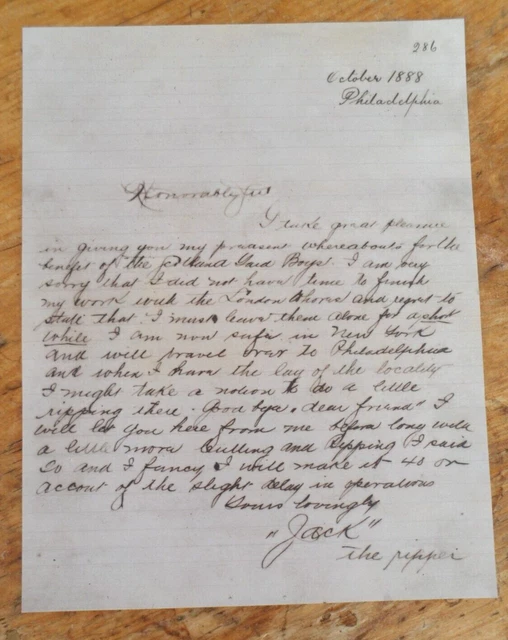 286
October 1888
Philadelphia
Honorable Sir
I take great pleasure
in giving you my preasent whereabouts for the
benefit of the Scotland Yard Boys. I am very
sorry that I did not have time to finish
my work with the London Whores and regret to
state that I must leave them alone for a short
while I am now safe in New York
and will travel over to Philadelphia
and when I have the lay of the locality
I might take a notion to do a little
ripping there. Good bye "dear friend" I
will let you here from me before long with
a little more Cutting and Ripping I said
so and I fancy I will make it 40 on
accout of the slight delay in operations
Yours lovingly
"Jack"
the ripper